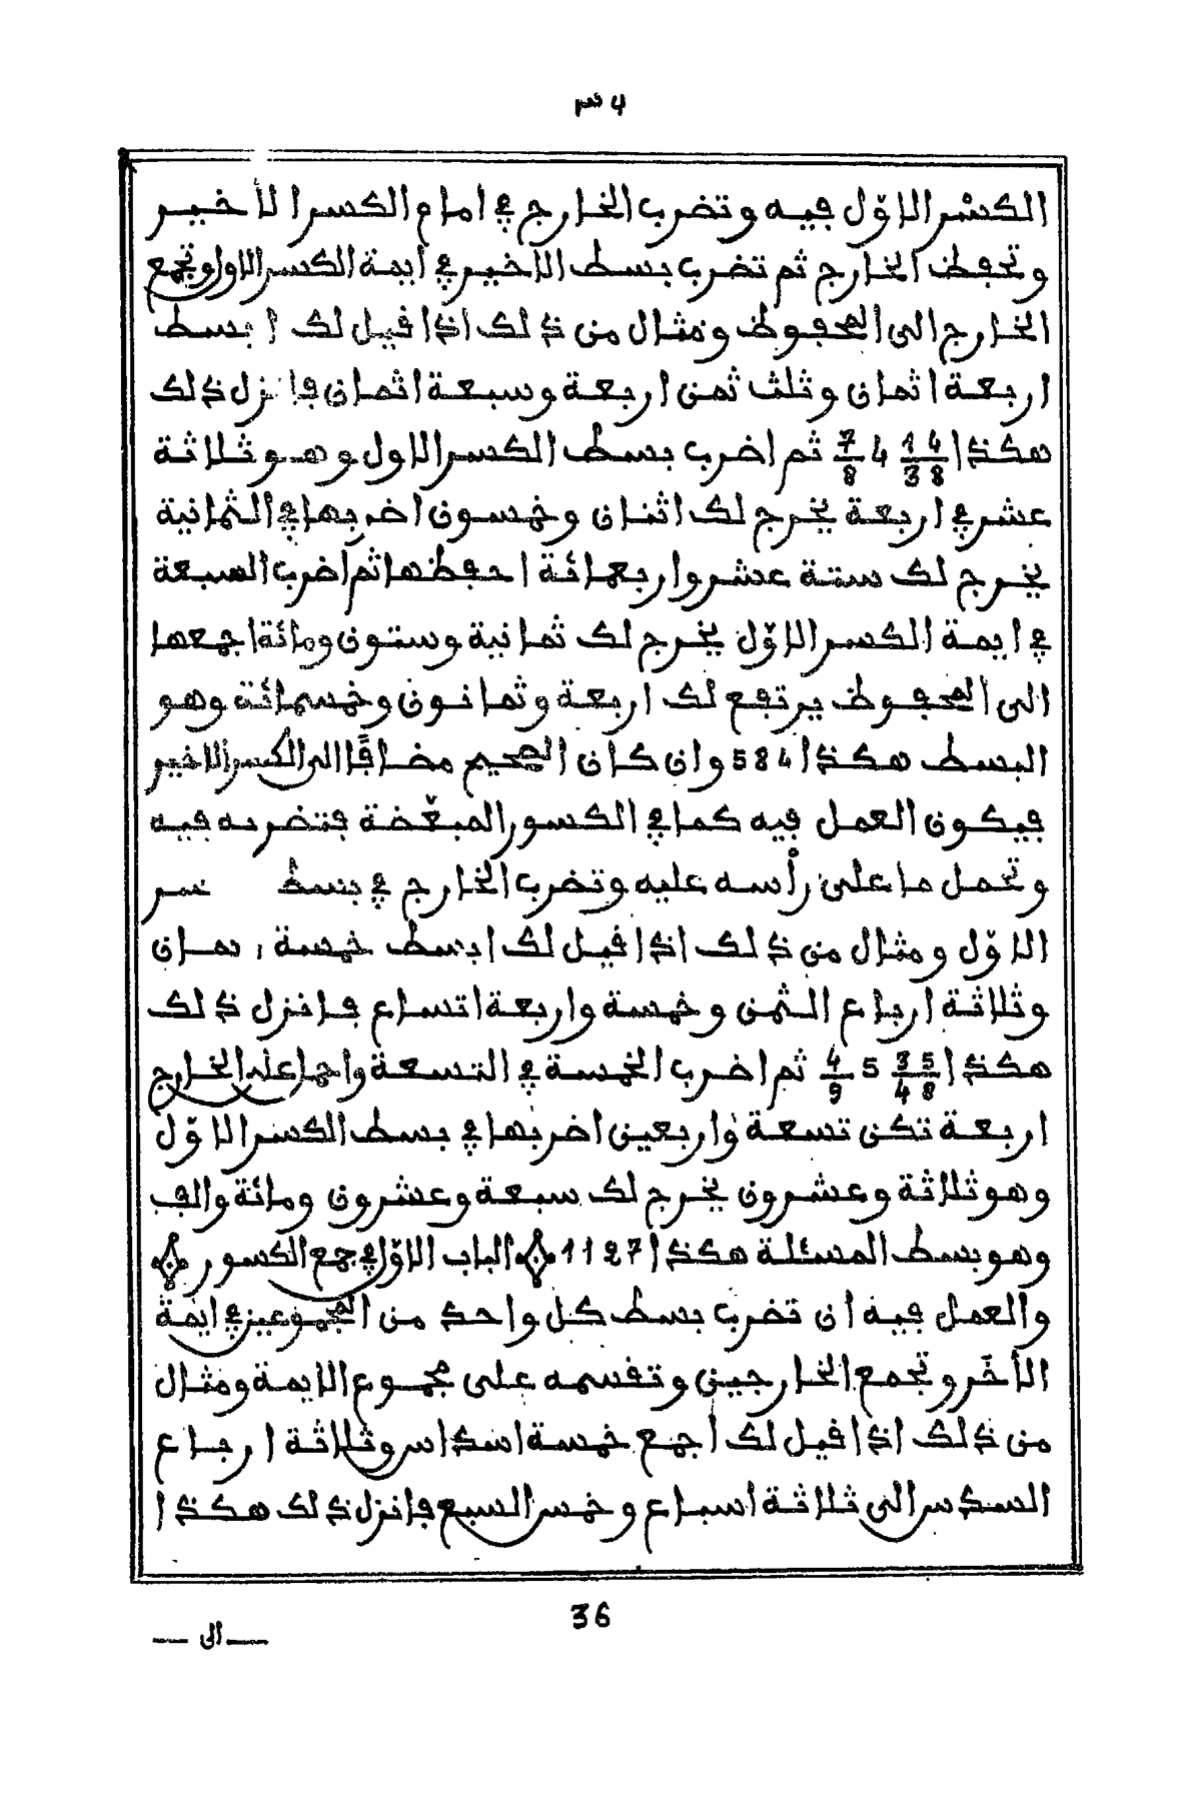 الكسْر الاوّل فيه وتضرب الخارج في امام الكسر الأخير
وتحفظ الخارج ثم تضرب بسط الاخير في ايمة الكسر الاول وتجمع
الخارج الى المحفوظ ومثال من ذلك اذا قيل لك ابسط
اربعة اثمان وثلث ثمن اربعة وسبعة اثمان فانزل ذلك
هكذا 1/3 4/8 4 7/8 ثم اضرب بسط الكسر الاول وهو ثلاثة
عشر في اربعة يخرج لك اثنان وخمسون اضربها في الثمانية
يخرج لك ستة عشر واربعمائة احفظها ثم اضرب السبعة
في ايمة الكسر الاوّل يخرج لك ثمانية وستون ومائة اجمعها
الى المحفوظ يرتفع لك اربعة وثمانون وخمسمائة وهو
البسط هكذا 584 وان كان الصحيح مضافًا الى الكسر الاخير
فيكون العمل فيه كما في الكسور المبعّضة فتضربه فيه
وتحمل ما على رأسه عليه وتضرب الخارج في بسط سر
الاوّل ومثال من ذلك اذا قيل لك ابسط خمسة مان
وثلاثة ارباع الثمن وخمسة واربعة اتساع فانزل ذلك
هكذا 3/4 5/8 5 4/9 ثم اضرب الخمسة في التسعة واحمل على الخارج
اربعة تكن تسعة واربعين اضربها في بسط الكسر الاوّل
وهو ثلاثة وعشرون يخرج لك سبعة وعشرون ومائة والف
وهو بسط المسئلة هكذا 1127 الباب الاوّل في جمع الكسور
والعمل فيه ان تضرب بسط كل واحد من المجموعين في ايمة
الأخَر وتجمع الخارجين وتقسمه على مجموع الايمة ومثال
من ذلك اذا قيل لك اجمع خمسة اسداس وثلاثة ارباع
السدس الى ثلاثة اسباع وخمس السبع فانزل ذلك هكذا
36
الى